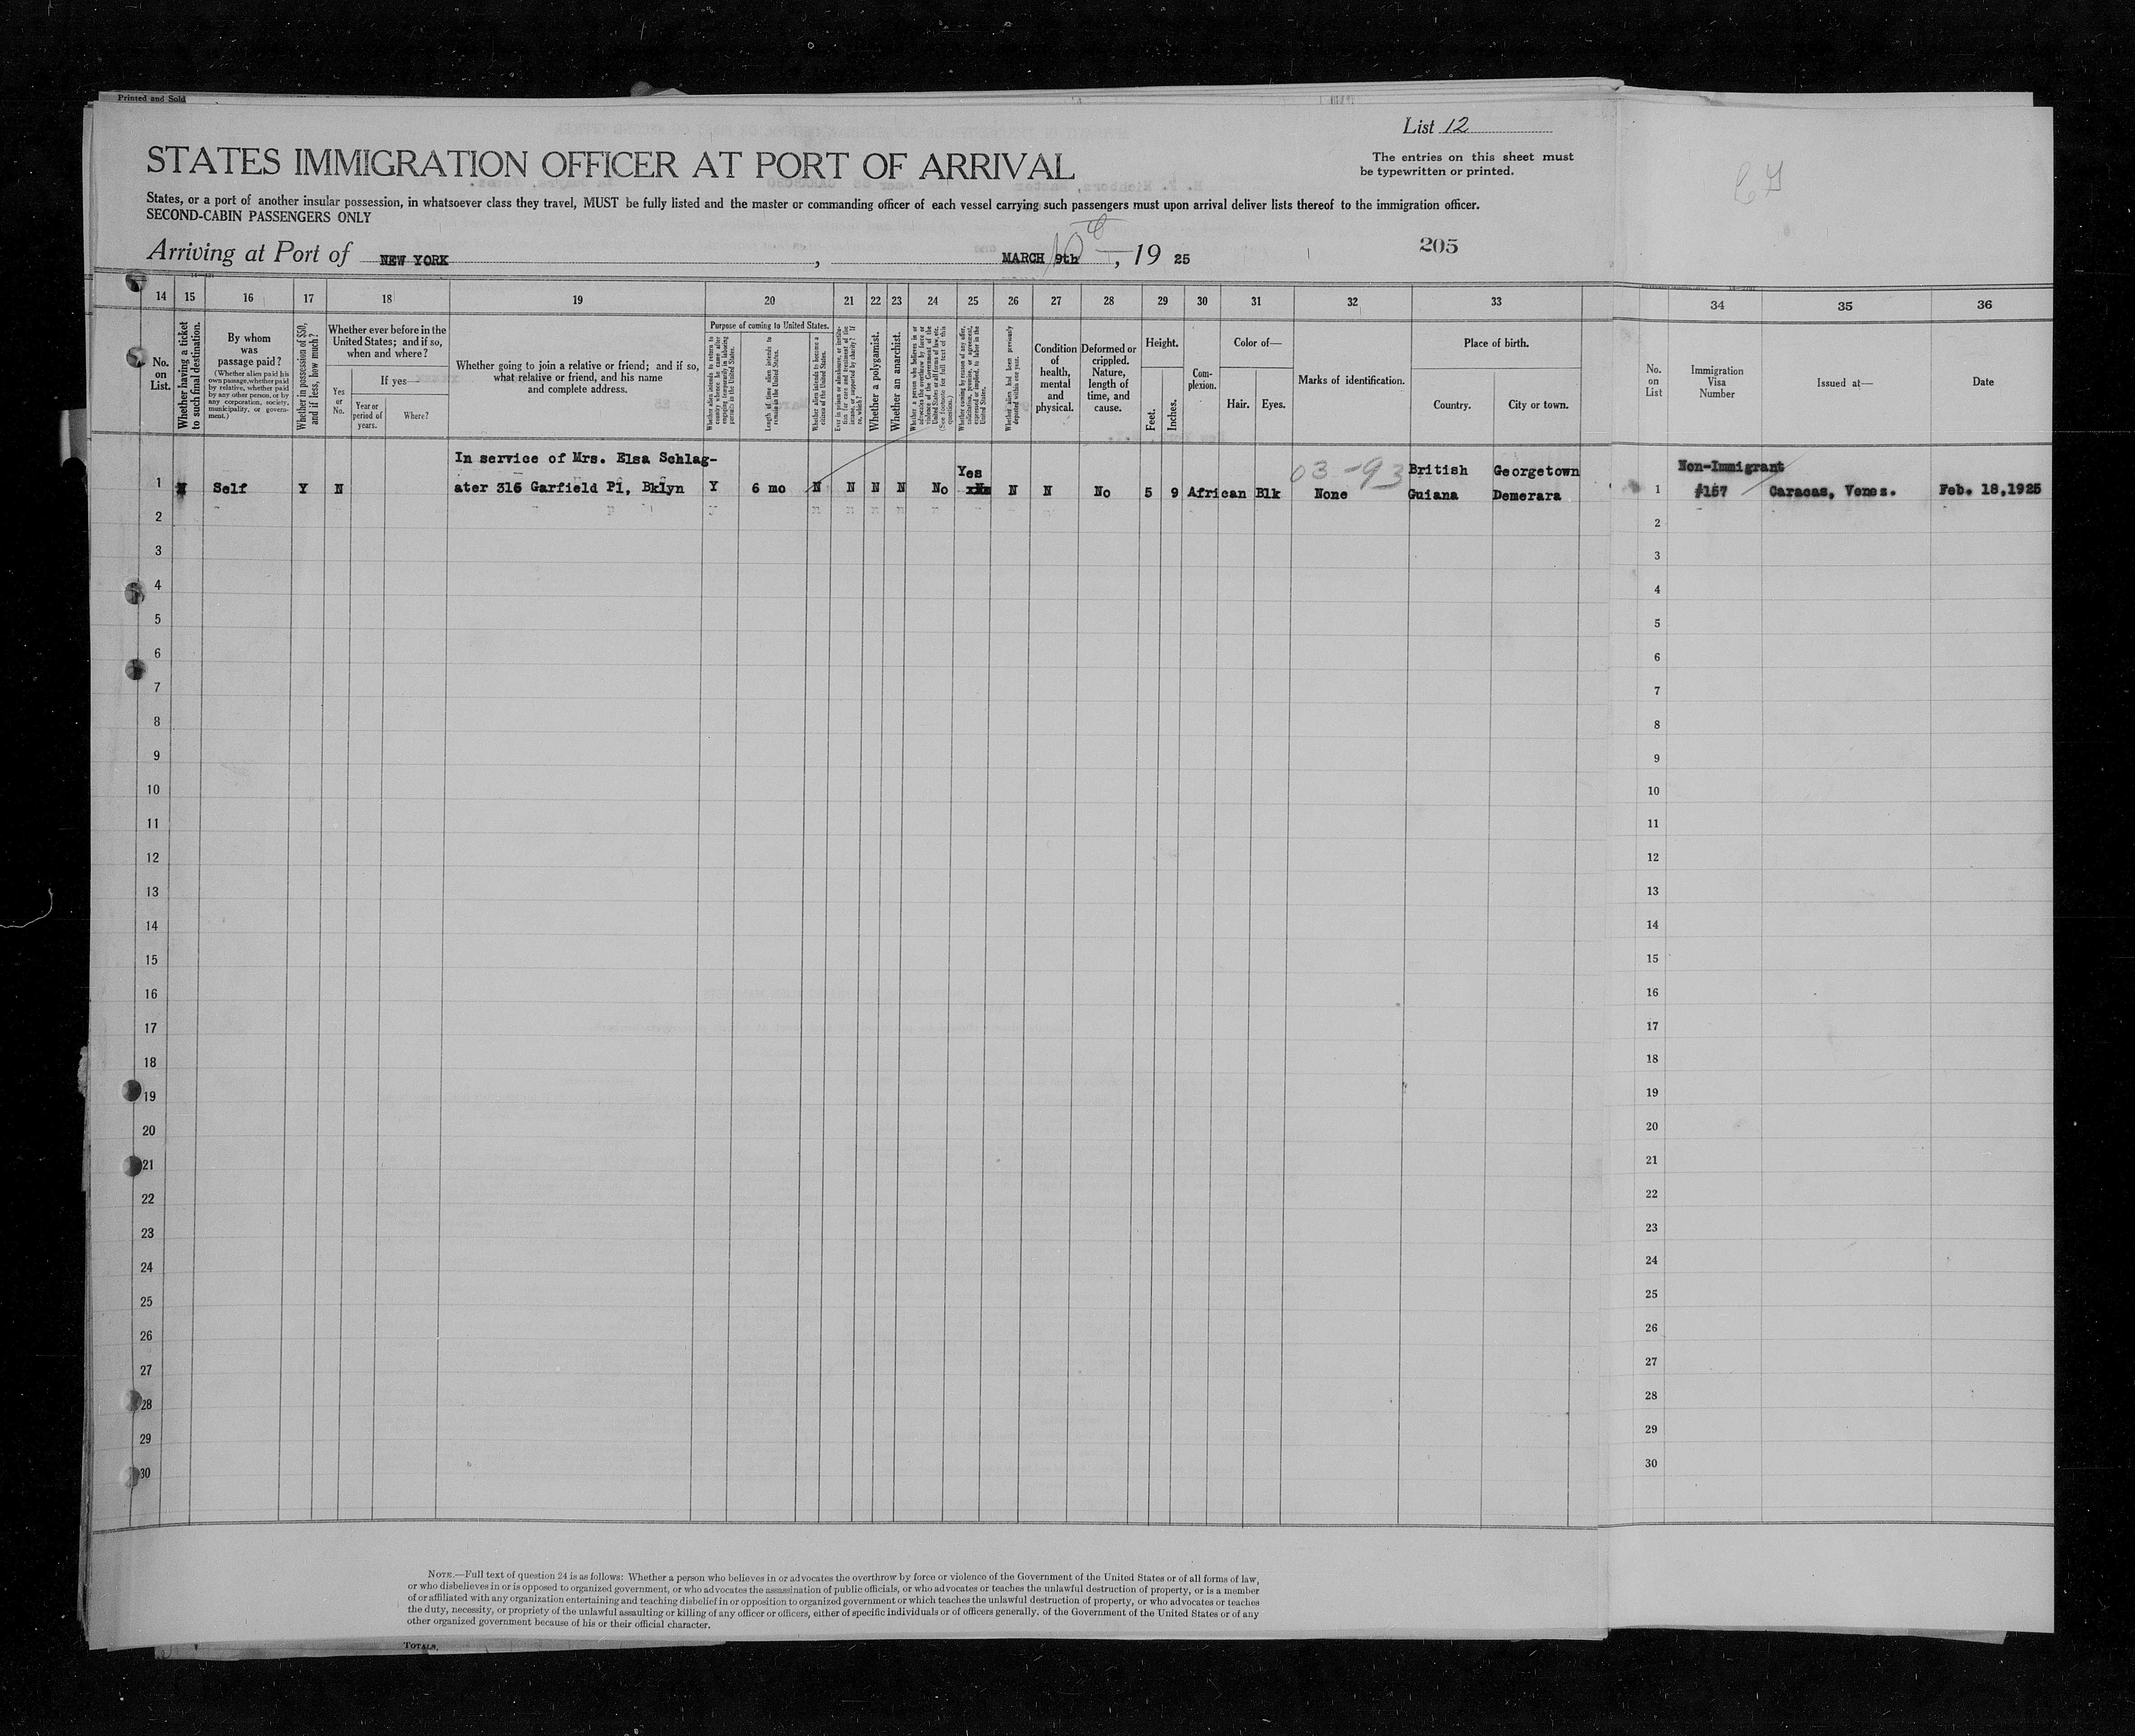 Printed and Sold
List 12
STATES IMMIGRATION OFFICER AT PORT OF ARRIVAL
The entries on this sheet must
be typewritten or printed.
States, or a port of another insular possession, in whatsoever class they travel, MUST be fully listed and the master or commanding officer of each vessel carrying such passengers must upon arrival deliver lists thereof to the immigration officer.
SECOND-CABIN PASSENGERS ONLY
205
Arriving at Port of NEW YORK, MARCH 9th 10th, 19 25
14 15 16 17 18 19 20 21 22 23 24 25 26 27 28 29 30 31 32 33 34 35 36
No. on List.
Whether having a ticket to such final destination.
By whom was passage paid?
(Whether alien paid his own passage, whether paid by relative, whether paid by any other person, or by any corporation, society, municipality, or government.)
Whether in possession of $50, and if less, how much?
Whether ever before in the United States; and if so, when and where?
Yes or No.
If yes—
Year or period of years.
Where?
Whether going to join a relative or friend; and if so, what relative or friend, and his name and complete address.
Purpose of coming to United States.
Whether alien intends to return to country whence he came after engaging temporarily in laboring pursuits in the United States.
Length of time alien intends to remain in the United States.
Whether alien intends to become a citizen of the United States.
Ever in prison or almshouse, or institution for care and treatment of the insane, or supported by charity? If so, which?
Whether a polygamist.
Whether an anarchist.
Whether a person who believes in or advocates the overthrow by force or violence of the Government of the United States or all forms of law, etc. (See footnote for full text of this question.)
Whether coming by reason of any offer, solicitation, promise, or agreement, expressed or implied, to labor in the United States.
Whether alien had been previously deported within one year.
Condition of health, mental and physical.
Deformed or crippled. Nature, length of time, and cause.
Height.
Feet.
Inches.
Complexion.
Color of—
Hair.
Eyes.
Marks of identification.
Place of birth.
Country.
City or town.
No. on List
Immigration Visa Number
Issued at—
Date
In service of Mrs. Elsa Schlag-
Yes
03-93
British Georgetown
Non-Immigrant
1 N Self Y N ater 316 Garfield Pl, Bklyn Y 6 mo N N N N No N N No 5 9 African Blk None Guiana Demerara 1 #157 Caracas, Venez. Feb. 18,1925
2 2
3 3
4 4
5 5
6 6
7 7
8 8
9 9
10 10
11 11
12 12
13 13
14 14
15 15
16 16
17 17
18 18
19 19
20 20
21 21
22 22
23 23
24 24
25 25
26 26
27 27
28 28
29 29
30 30
NOTE.—Full text of question 24 is as follows: Whether a person who believes in or advocates the overthrow by force or violence of the Government of the United States or of all forms of law,
or who disbelieves in or is opposed to organized government, or who advocates the assassination of public officials, or who advocates or teaches the unlawful destruction of property, or is a member
of or affiliated with any organization entertaining and teaching disbelief in or opposition to organized government or which teaches the unlawful destruction of property, or who advocates or teaches
the duty, necessity, or propriety of the unlawful assaulting or killing of any officer or officers, either of specific individuals or of officers generally, of the Government of the United States or of any
other organized government because of his or their official character.
TOTALS,